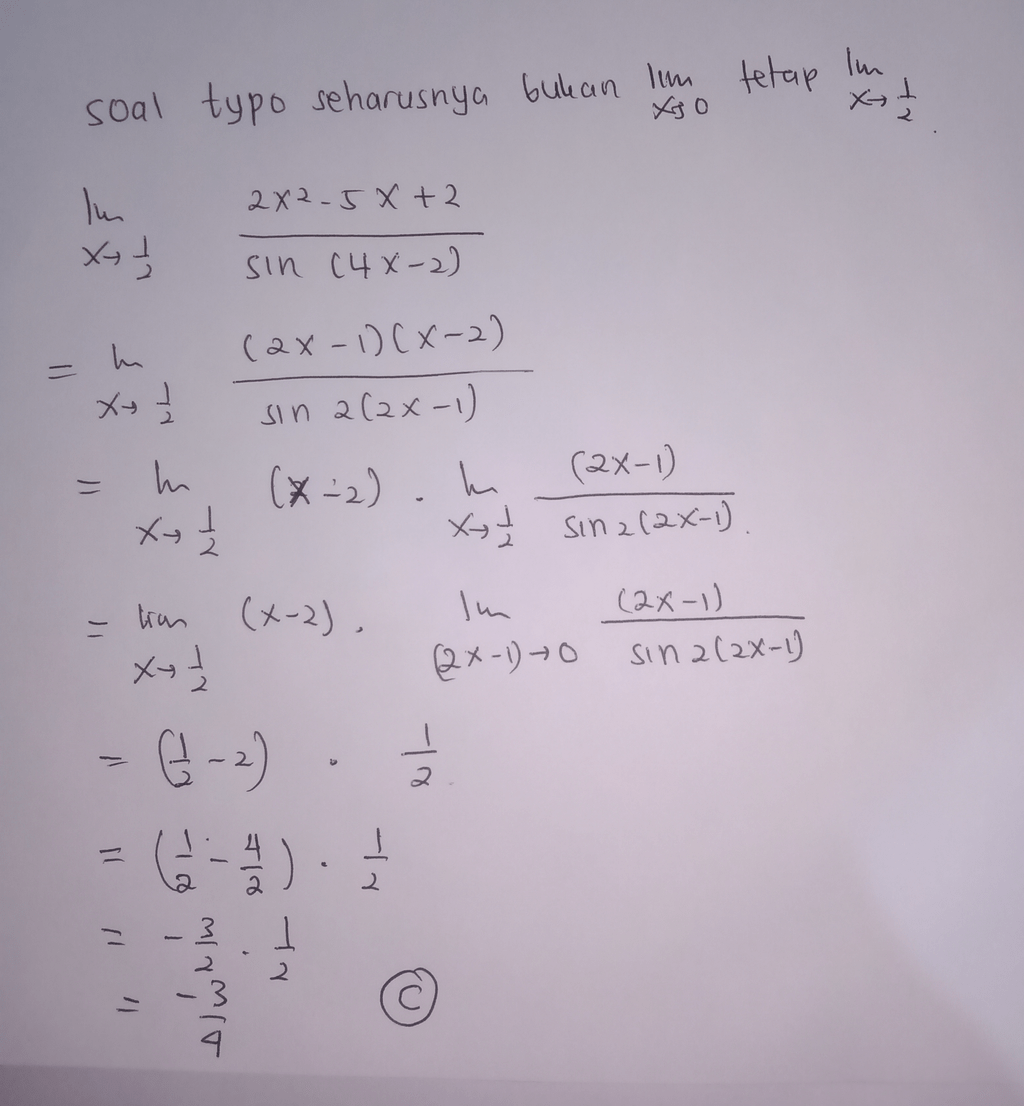 soal typo seharusnya bukan lim x→0 tetap lim x→ 1/2.
lim x→ 1/2 (2x2 - 5x + 2) / (sin (4x-2))
= lim x→ 1/2 ((2x-1)(x-2)) / (sin 2(2x-1))
= lim x→ 1/2 (x-2) . lim x→ 1/2 (2x-1) / (sin 2(2x-1)).
= lim x→ 1/2 (x-2) . lim (2x-1)→0 (2x-1) / (sin 2(2x-1))
= (1/2 - 2) . 1/2
= (1/2 - 4/2) . 1/2
= -3/2 . 1/2
= -3/4 (C)